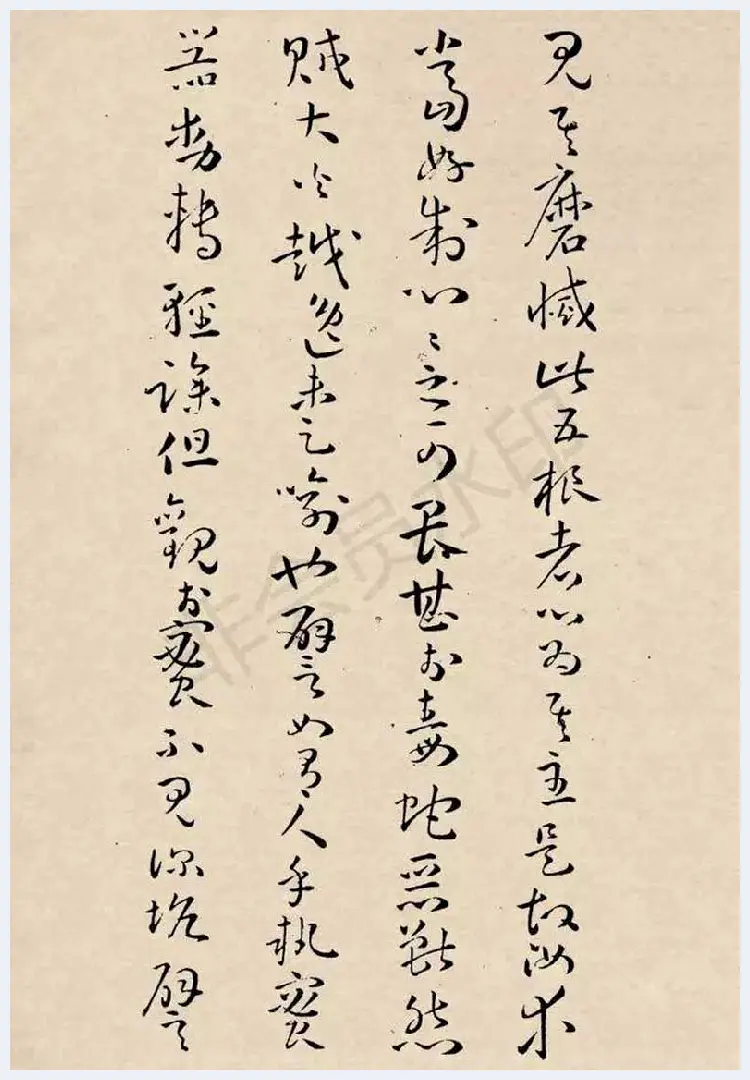 見其磨滅此五根者心為其主是故汝等
當好制心〻之可畏甚於毒蛇惡獸怨
賊大火越逸未足喻也譬如有人手執蜜
器動轉輕躁但觀於蜜不見深坑譬
非会员水印